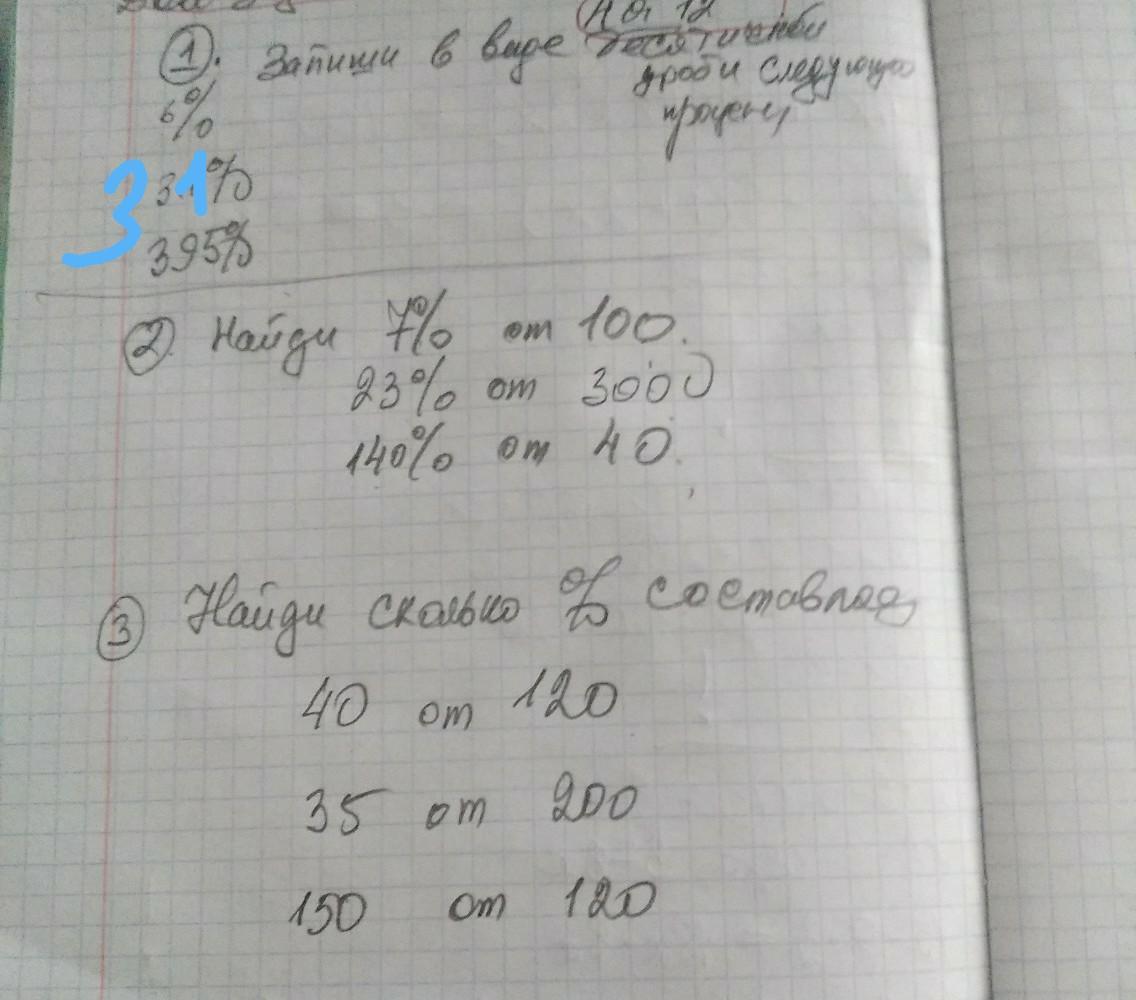 1. Запиши в виде десятичной
дроби следующие
процент
6%
31%
31
395%
2. Найди 7% от 100.
23% от 3000
140% от 40.
3 Найди сколько % составляет
40 от 120
35 от 200
150 от 120